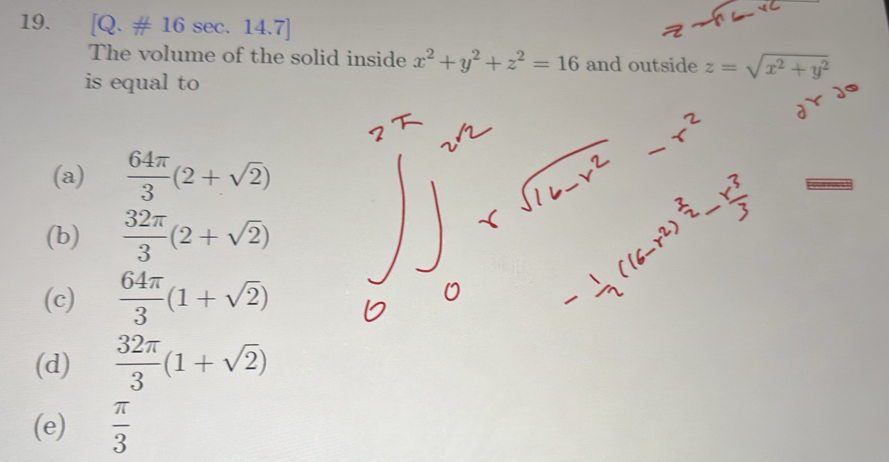 19. [Q. # 16 sec. 14.7]
z = √16-r²
The volume of the solid inside x² + y² + z² = 16 and outside z = √(x² + y²)
is equal to
(a) 64π/3 (2 + √2)
(b) 32π/3 (2 + √2)
(c) 64π/3 (1 + √2)
(d) 32π/3 (1 + √2)
(e) π/3
2π 2√2
∫ ∫ r √16-r² - r²
0 0
- 1/2 (16-r²)^3/2 - r³/3